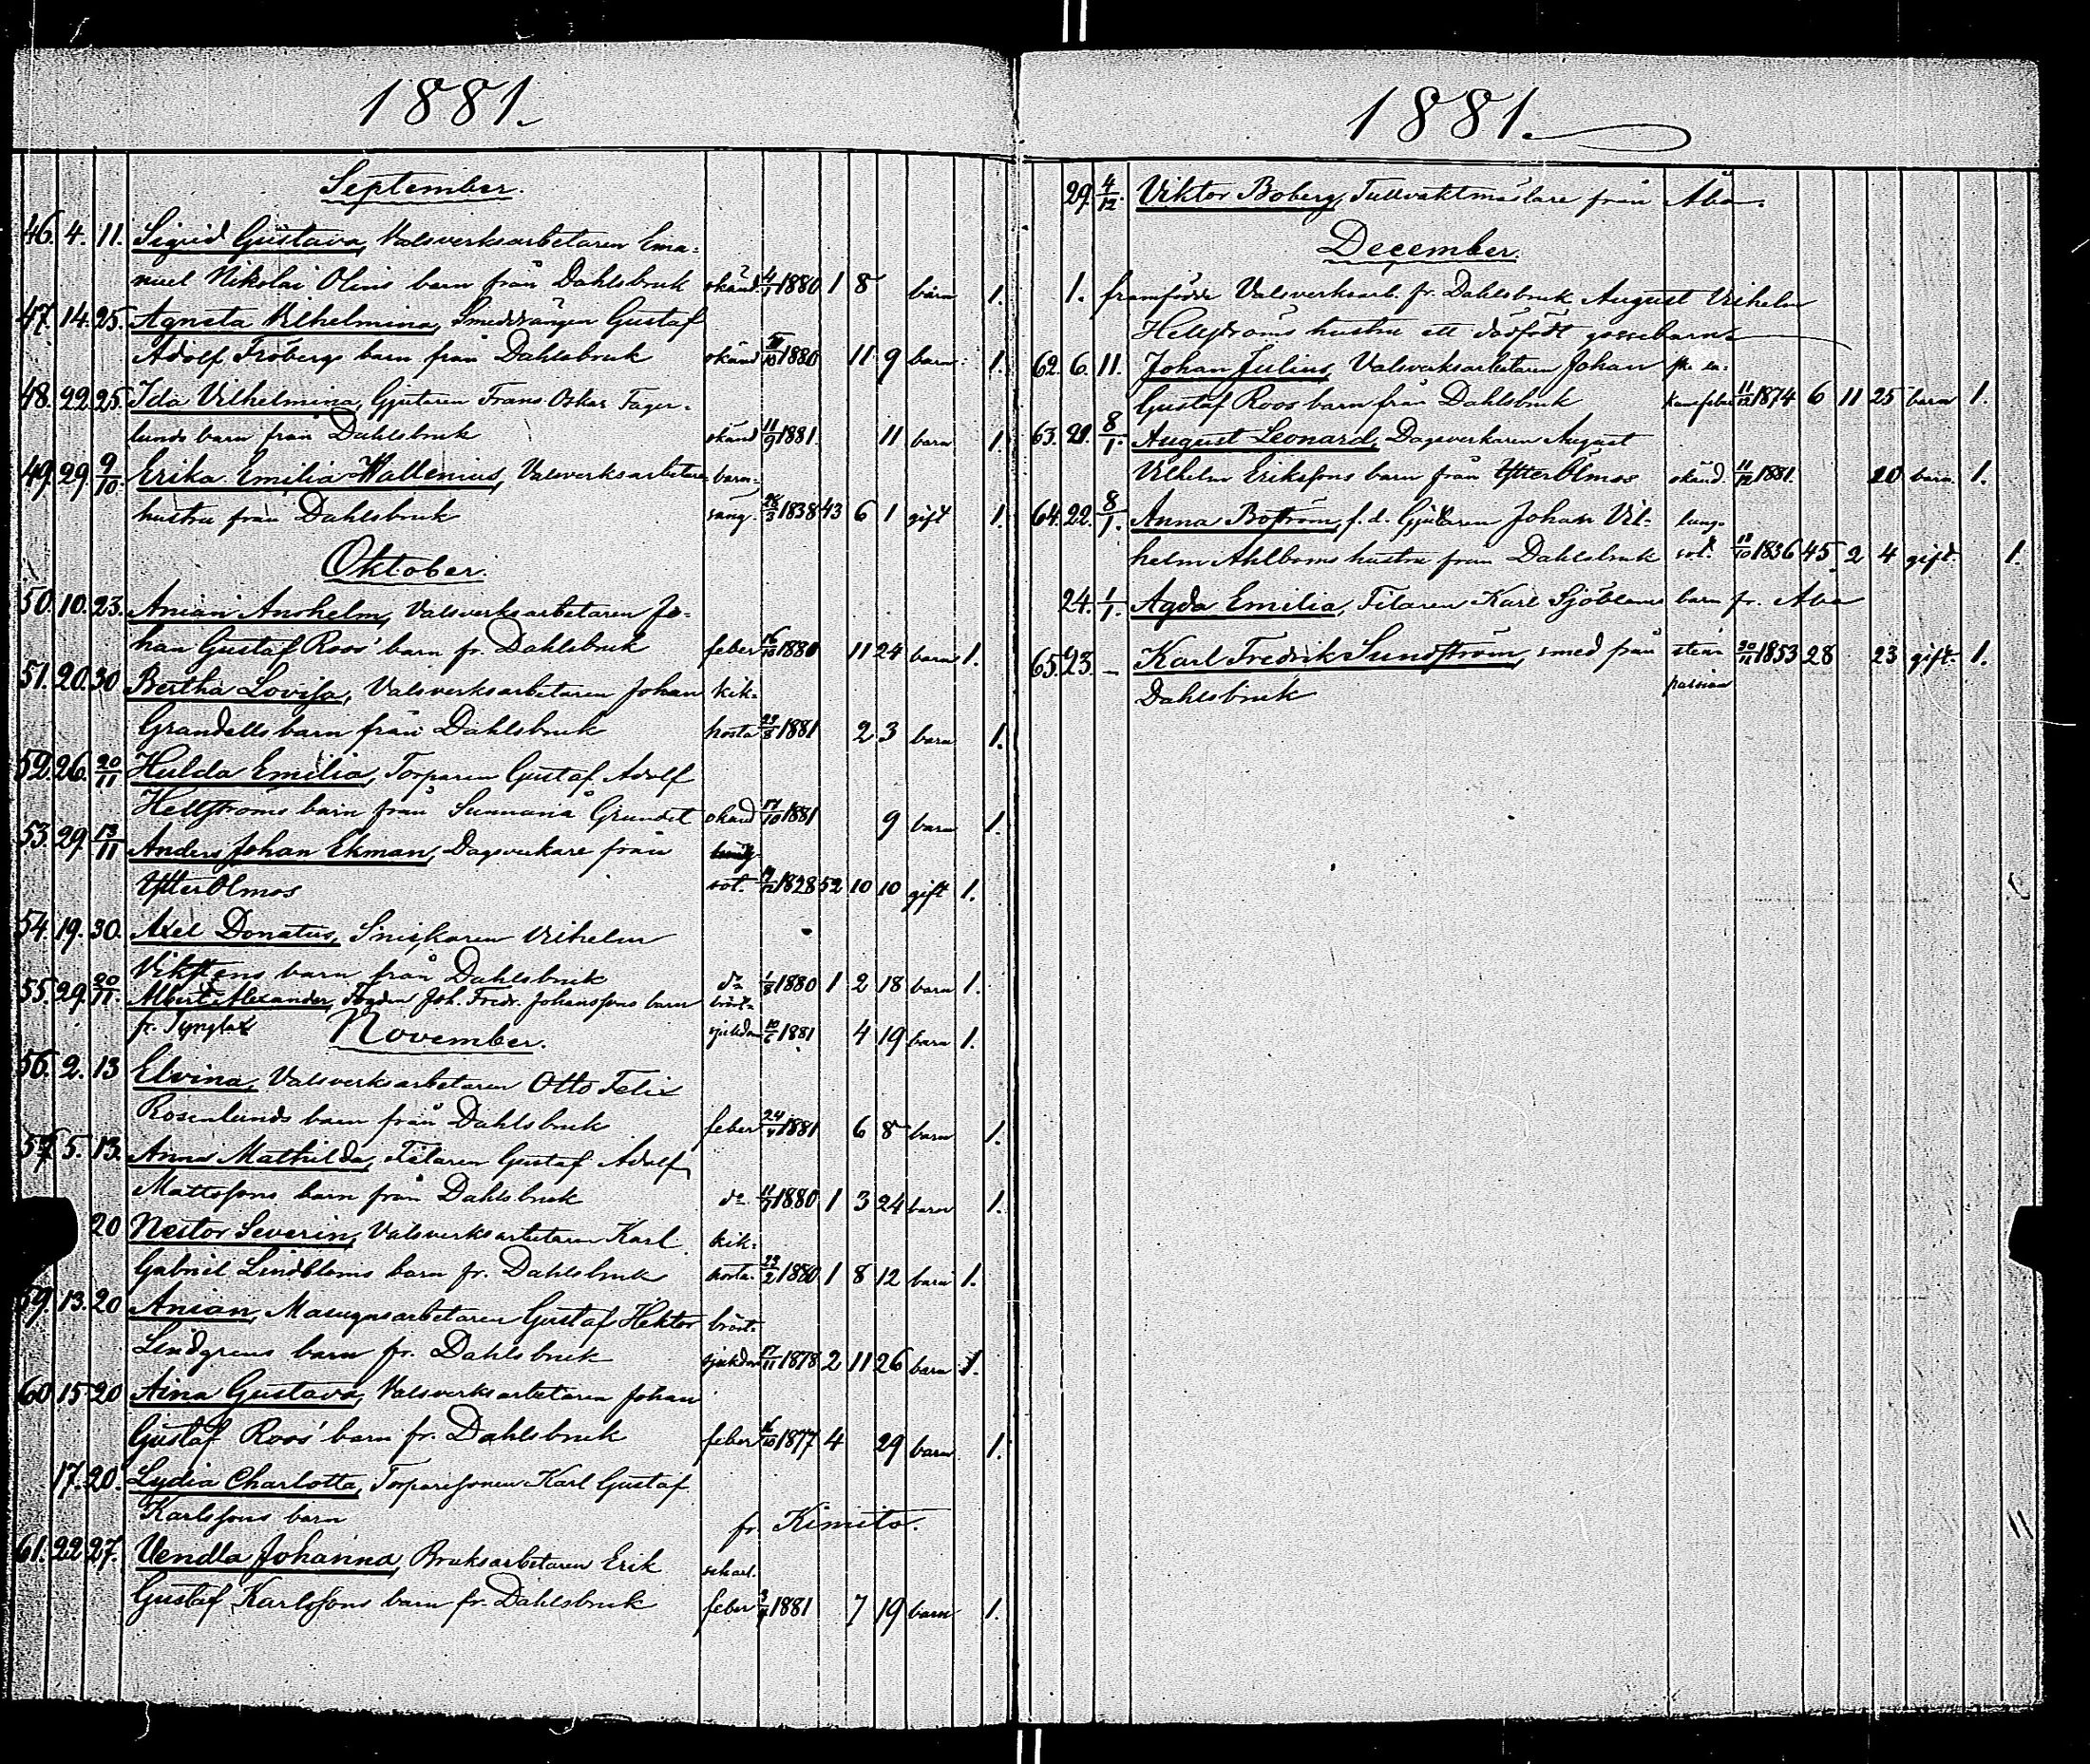 1881.
September.
46. 4. 11. Sigrid Gustava, Valsverksarbetaren Ema-
nuel Nikolai Olins barn från Dahlsbruk okänd. 4/1 1880 1 8 barn 1.
47. 14. 25. Agneta Vilhelmina, Smeddrängen Gustaf
Adolf Fröbergs barn från Dahlsbruk okänd 1880 11 9 barn 1.
48. 22. 25. Ida Vilhelmina, Gjutaren Frans Oskar Fager-
lunds barn från Dahlsbruk okänd 11/9 1881. 11 barn 1.
49. 29. 9/10. Erika Emilia Wallenius, Valsverksarbetare barn-
hustru från Dahlsbruk säng. 28/3 1838 43 6 1 gift 1.
Oktober.
50. 10. 23. Anian Anshelm, Valsverksarbetaren Jo-
han Gustaf Roos' barn fr. Dahlsbruk feber 16/10 1880 11 24 barn 1.
51. 20. 30 Bertha Lovisa, Valsverksarbetaren Johan kik-
Grandells barn från Dahlsbruk hosta 1881 2 3 barn 1.
52. 26. 20/11 Hulda Emilia, Torparen Gustaf Adolf
Hellströms barn från Sunnanå Grundet okänd 17/10 1881 9 barn 1.
53. 29. 13/11 Anders Johan Ekman, Dagsverkare från
YtterÖlmos sot. 19/12 1828 52 10 10 gift 1.
54. 19. 30. Axel Donatus, Snickaren Vilhelm
Vikstens barn från Dahlsbruk do 1/8 1880 1 2 18 barn 1.
55. 29. 20/11. Albert Alexander, Fogden Joh. Fredr. Johanssons barn bröst-
fr. Tynglax sjukdom 10/6 1881 4 19 barn 1.
November.
56. 2. 13 Elvina, Valsverksarbetaren Otto Felix
Rosenlunds barn från Dahlsbruk feber 24/4 1881 6 8 barn 1.
57. 5. 13. Anna Mathilda, Filaren Gustaf Adolf
Mattssons barn från Dahlsbruk do 11/7 1880 1 3 24 barn 1.
20 Nestor Severin, Valsverksarbetaren Karl kik-
Gabriel Lindbloms barn fr. Dahlsbruk hosta. 1880 1 8 12 barn 1.
59. 13. 20 Anian, Masugnsarbetaren Gustaf Hektor bröst-
Lindgrens barn fr. Dahlsbruk sjukdom 17/11 1878 2 11 26 barn 1.
60 15 20 Aina Gustava, Valsverksarbetaren Johan
Gustaf Roos' barn fr. Dahlsbruk feber 16/10 1877 4 29 barn 1.
17. 20. Lydia Charlotta, Torparesonen Karl Gustaf
Karlssons barn fr. Kimito.
61. 22 27. Vendla Johanna, Bruksarbetaren Erik scharl.
Gustaf Karlssons barn fr. Dahlsbruk feber 1881 7 19 barn 1.
1881.
29. 4/12. Viktor Boberg, Tullvaktmästare från Åbo.
December.
1. framfödde Valsverksarb. fr. Dahlsbruk August Vilhelm
Hellströms hustru ett dödfödt gossebarn
62. 6. 11. Johan Julius, Valsverksarbetaren Johan
Gustaf Roos barn från Dahlsbruk 11/12 1874 6 11 25 barn 1.
63. 21. 8/1. August Leonard, Dagsverkaren August
Vilhelm Erikssons barn från YtterÖlmos okänd. 11/12 1881. 20 barn. 1.
64. 22. 8/1. Anna Boström, f. d. Gjutaren Johan Vil- lung-
helm Ahlboms hustru från Dahlsbruk sot. 18/10 1836 45 2 4 gift. 1.
24. 1/1. Agda Emilia, Filaren Karl Sjöbloms barn fr. Åbo
65. 23. – Karl Fredrik Sundström, smed från sten 30/11 1853 28 23 gift. 1.
Dahlsbruk passion